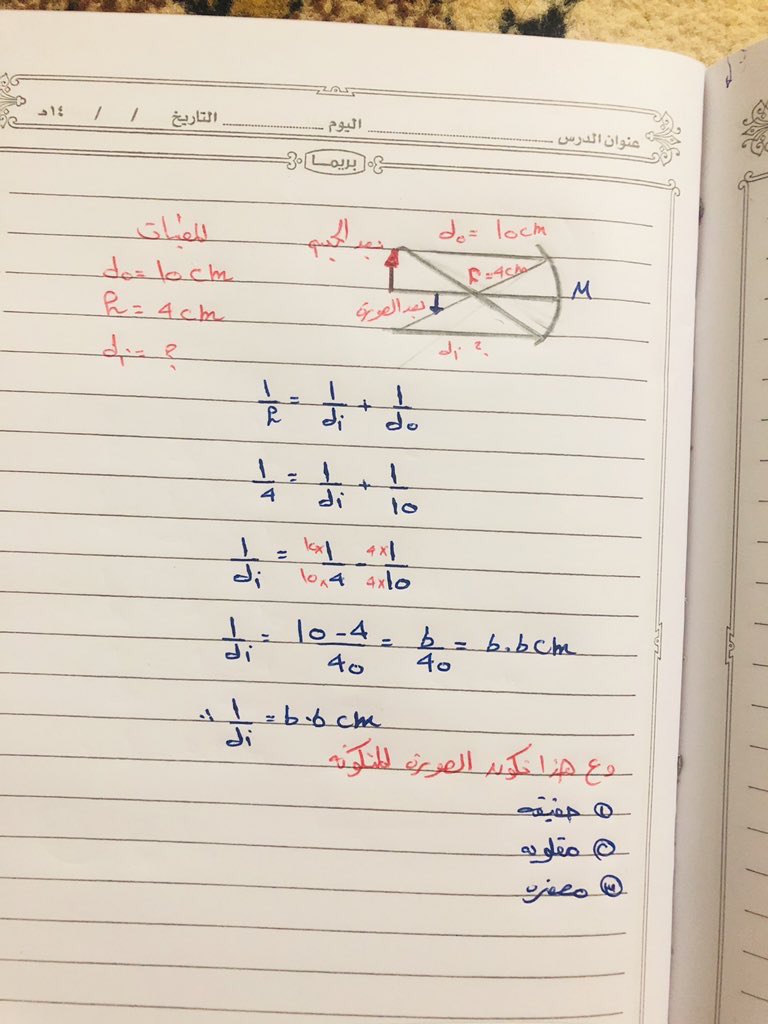 عنوان الدرس ........ اليوم ........ التاريخ / / ١٤هـ
بريمـا
المعطيات
do = 10 cm
f = 4 cm
di = ?
بعد الجسم
do = 10 cm
f = 4 cm
M
بعد الصورة
di ?
1/f = 1/di + 1/do
1/4 = 1/di + 1/10
1/di = 10×1/10×4 - 4×1/4×10
1/di = 10-4/40 = 6/40 = 6.6 cm
∴ 1/di = 6.6 cm
هذا تكون الصورة المتكونه
① حقيقه
② مقلوبه
③ مصغره